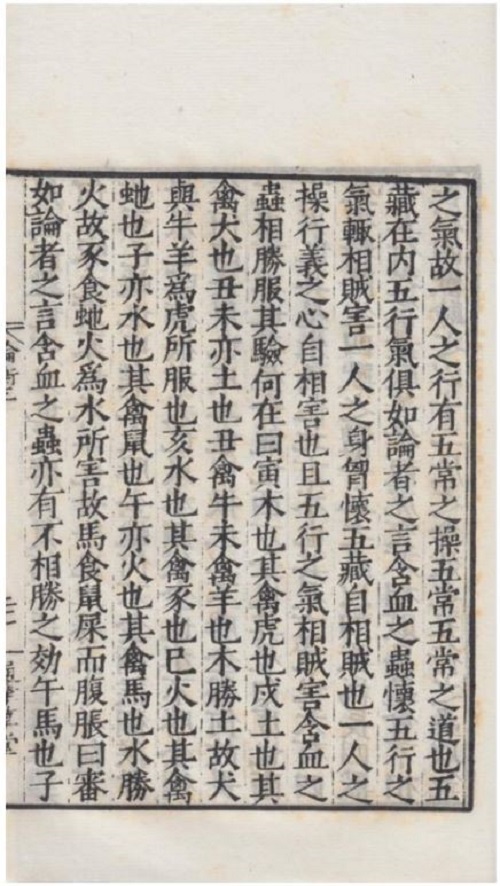 之氣故一人之行有五常之操五常五常之道也五
藏在內五行氣俱如論者之言含血之蟲懷五行之
氣輙相賊害一人之身胷懷五藏自相賊也一人之
操行義之心自相害也且五行之氣相賊害含血之
蟲相勝服其驗何在曰寅木也其禽虎也戌土也其
禽犬也丑未亦土也丑禽牛未禽羊也木勝土故犬
與牛羊爲虎所服也亥水也其禽豕也巳火也其禽
虵也子亦水也其禽鼠也午亦火也其禽馬也水勝
火故豕食虵火爲水所害故馬食鼠屎而腹脹曰審
如論者之言含血之蟲亦有不相勝之効午馬也子